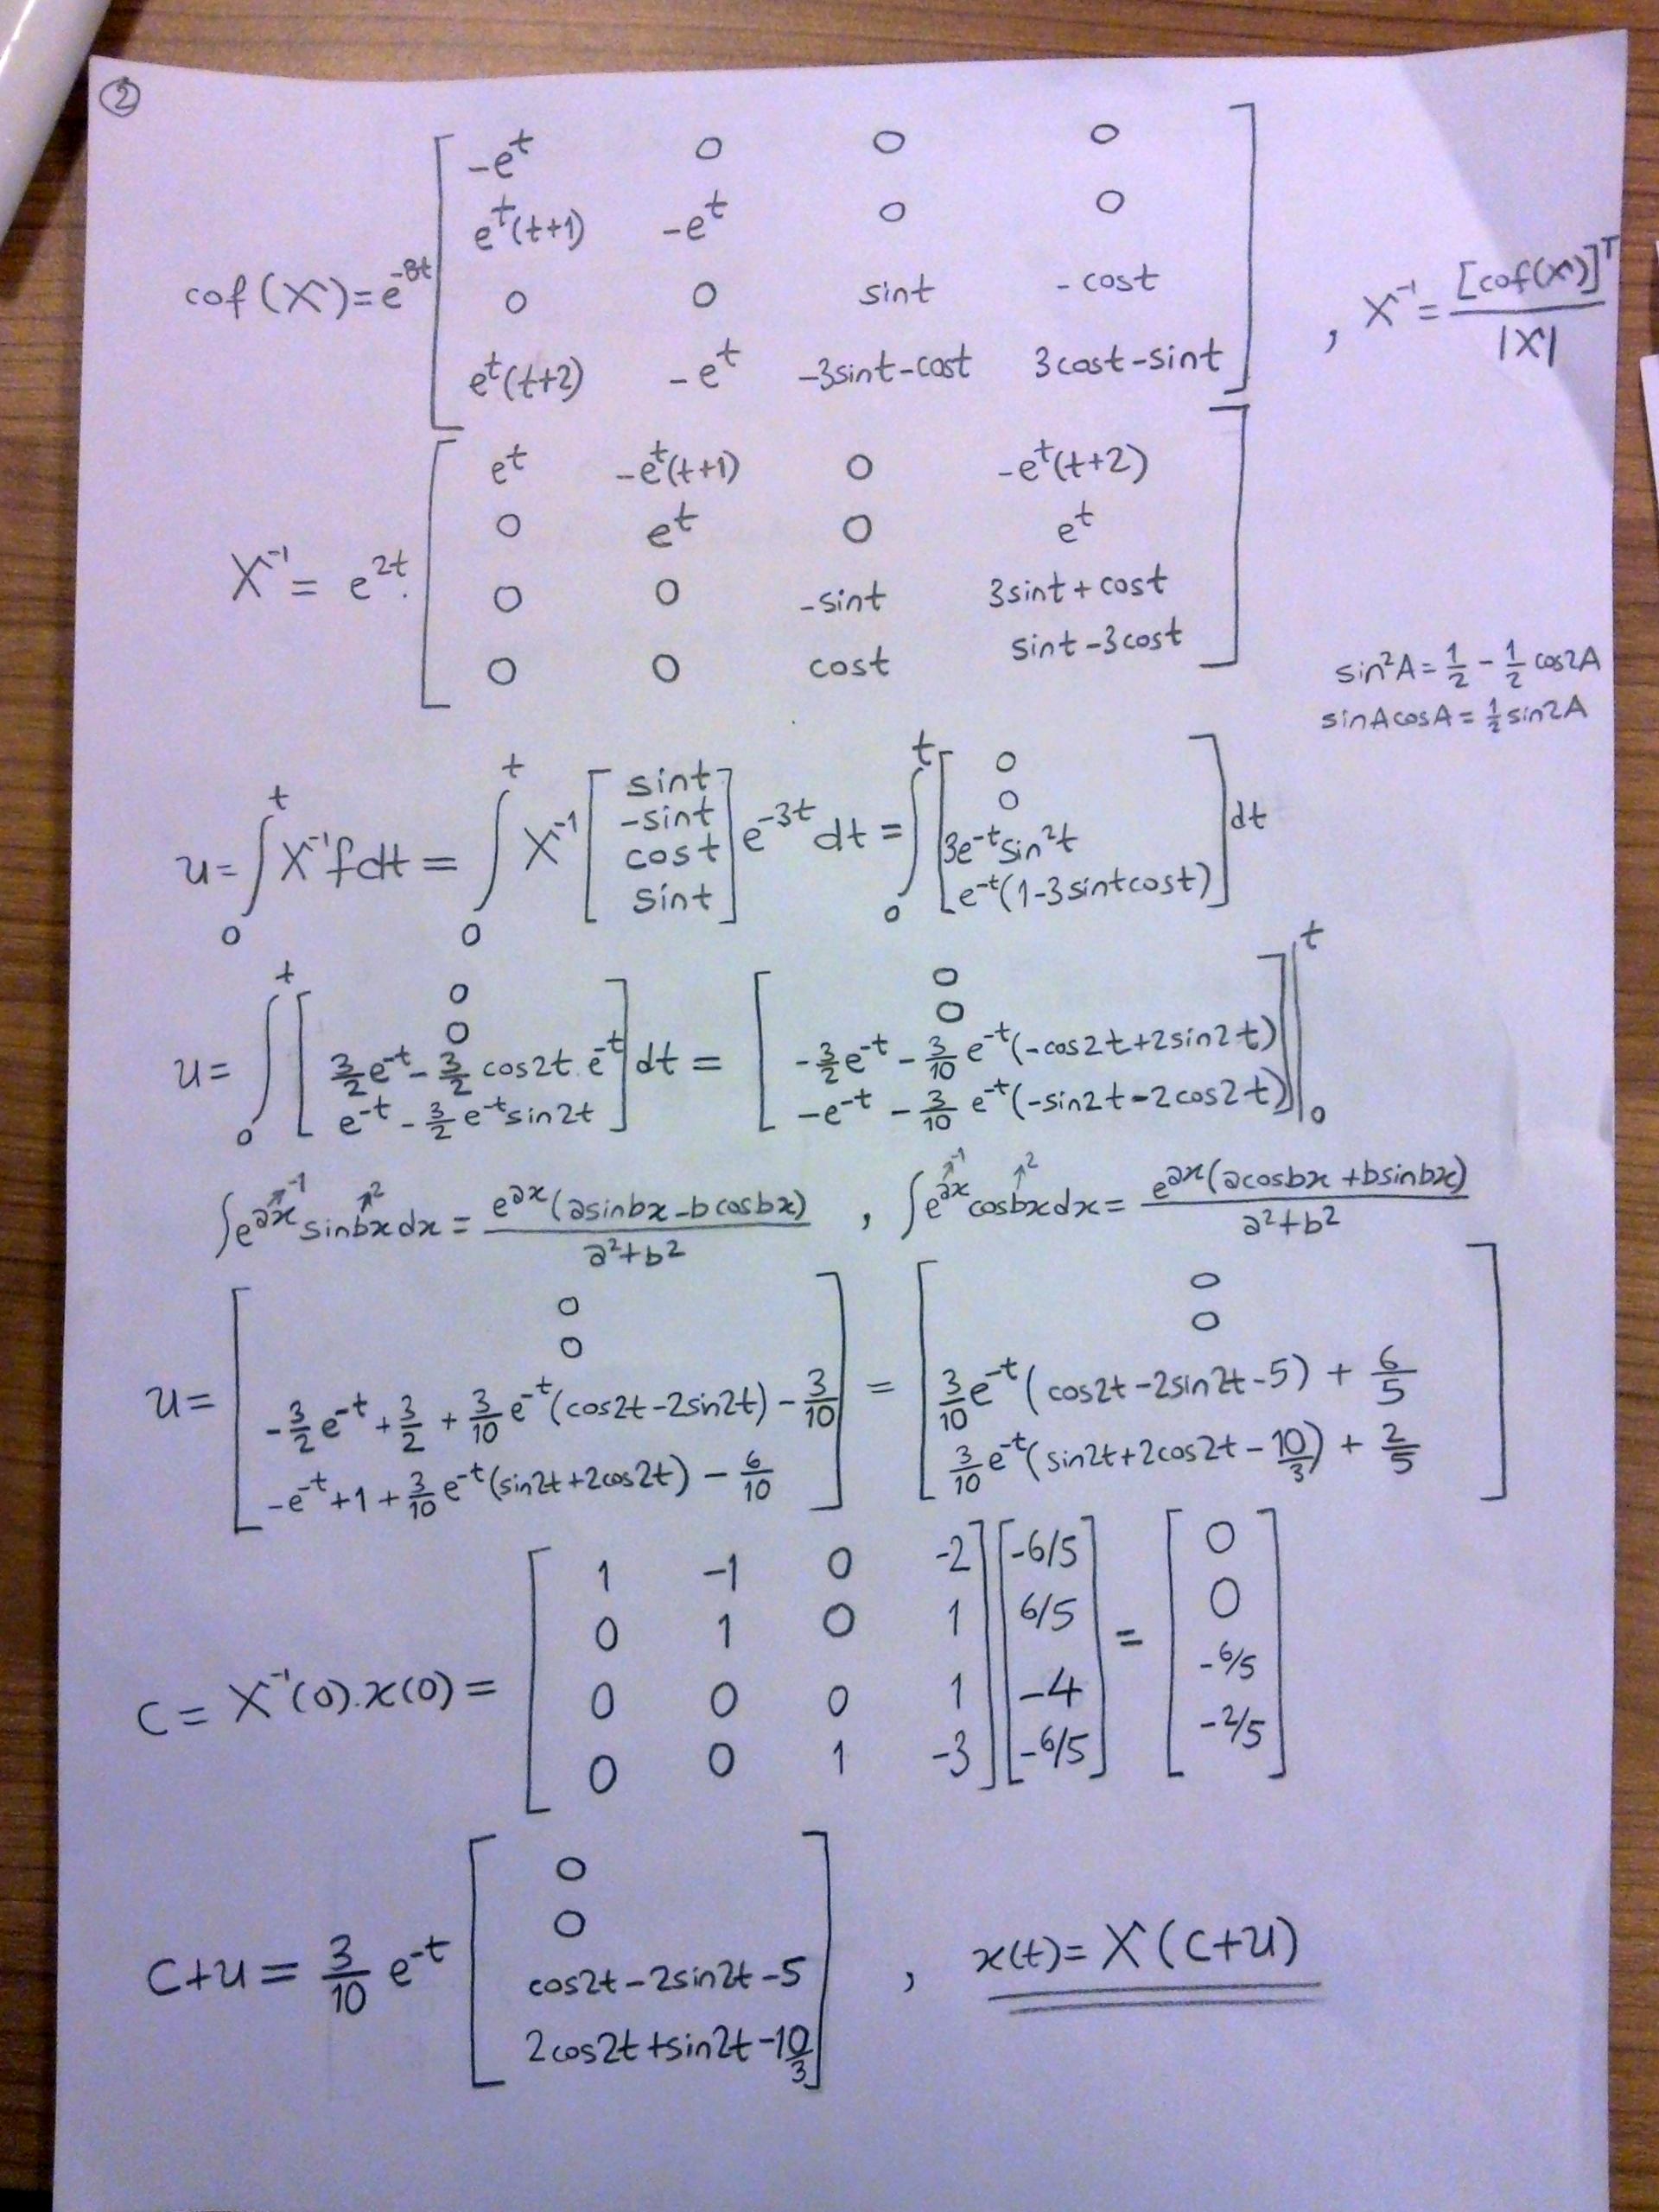 ②
cof(X) = e^{-8t} [ -e^t 0 0 0
e^t(t+1) -e^t 0 0
0 0 sint -cost
e^t(t+2) -e^t -3sint-cost 3cost-sint ] , X^{-1} = [cof(X)]^T / |X|
X^{-1} = e^{2t}. [ e^t -e^t(t+1) 0 -e^t(t+2)
0 e^t 0 e^t
0 0 -sint 3sint+cost
0 0 cost sint-3cost ]
sin²A = 1/2 - 1/2 cos2A
sinAcosA = 1/2 sin2A
u = ∫_0^t X^{-1}fdt = ∫_0^t X^{-1} [ sint
-sint
cost
sint ] e^{-3t} dt = ∫_0^t [ 0
0
3e^{-t}sin²t
e^{-t}(1-3sintcost) ] dt
u = ∫_0^t [ 0
0
3/2 e^{-t} - 3/2 cos2t.e^{-t}
e^{-t} - 3/2 e^{-t}sin2t ] dt = [ 0
0
-3/2 e^{-t} - 3/10 e^{-t}(-cos2t+2sin2t)
-e^{-t} - 3/10 e^{-t}(-sin2t-2cos2t) ] |_0^t
∫e^{ax} sinbxdx = e^{ax}(asinbx-bcosbx) / a²+b² , ∫e^{ax} cosbxdx = e^{ax}(acosbx+bsinbx) / a²+b²
↗-1 ↗2 ↗-1 ↗2
u = [ 0
0
-3/2 e^{-t} + 3/2 + 3/10 e^{-t}(cos2t-2sin2t) - 3/10
-e^{-t} + 1 + 3/10 e^{-t}(sin2t+2cos2t) - 6/10 ] = [ 0
0
3/10 e^{-t}(cos2t-2sin2t-5) + 6/5
3/10 e^{-t}(sin2t+2cos2t-10/3) + 2/5 ]
C = X^{-1}(0).x(0) = [ 1 -1 0 -2
0 1 0 1
0 0 0 1
0 0 1 -3 ] [ -6/5
6/5
-4
-6/5 ] = [ 0
0
-6/5
-2/5 ]
C+u = 3/10 e^{-t} [ 0
0
cos2t-2sin2t-5
2cos2t+sin2t-10/3 ] , x(t) = X(C+u)